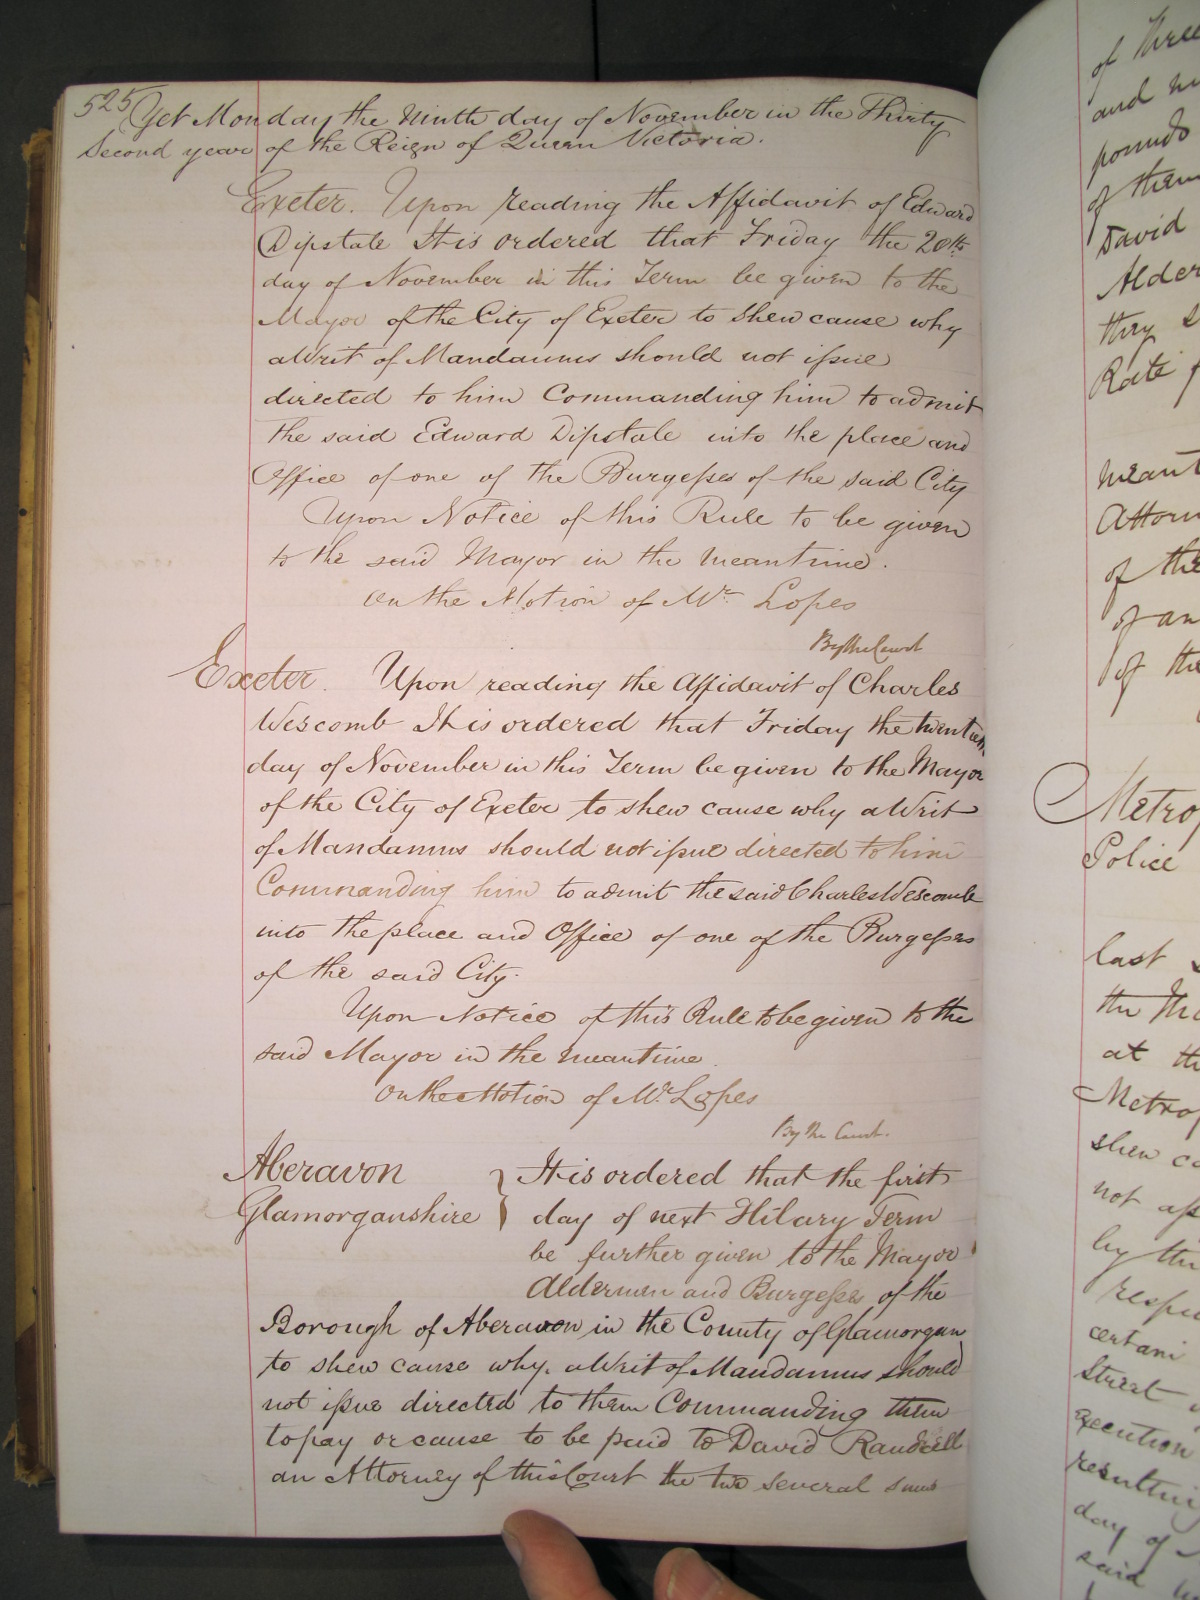 525 Yet Monday the Ninth day of November in the Thirty
Second year of the Reign of Queen Victoria.
Exeter. Upon reading the Affidavit of Edward
Dipstale It is ordered that Friday the 20th
day of November in this Term be given to the
Mayor of the City of Exeter to shew cause why
a Writ of Mandamus should not issue
directed to him Commanding him to admit
the said Edward Dipstale into the place and
Office of one of the Burgesses of the said City
Upon Notice of this Rule to be given
to the said Mayor in the meantime.
On the Motion of Mr Lopes
By the Court
Exeter. Upon reading the Affidavit of Charles
Wescomb It is ordered that Friday the twentieth
day of November in this Term be given to the Mayor
of the City of Exeter to shew cause why a Writ
of Mandamus should not issue directed to him
Commanding him to admit the said Charles Wescomb
into the place and Office of one of the Burgesses
of the said City.
Upon Notice of this Rule to be given to the
said Mayor in the meantime.
On the Motion of Mr Lopes
By the Court.
Aberavon } It is ordered that the first
Glamorganshire day of next Hilary Term
be further given to the Mayor
Aldermen and Burgesses of the
Borough of Aberavon in the County of Glamorgan
to shew cause why a Writ of Mandamus should
not issue directed to them Commanding them
to pay or cause to be paid to David Randell
an Attorney of this Court the two several sums
of three
and
of them
David
they
Rate
of the
of an
of the
Police
last
at
not
by
Street
execution
day of
said